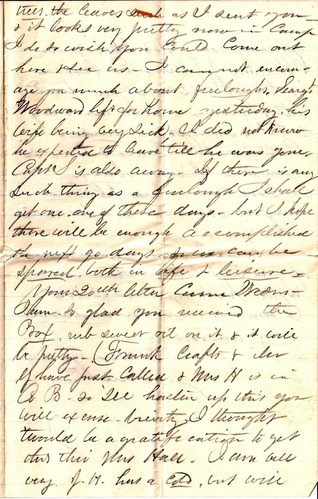 trees, the leaves such as I sent you
& it looks very pretty now in Camp
I do so wish you Could Come out
here & see us - I can not encour-
age you much about furloughs, Serg't
Woodward left for home yesterday, his
wife being very sick - I did not know
he expected to leave till he was gone,
Capt is also away - if there is any
such thing as a furlough I shall
get one, one of these days - but I hope
there will be enough accomplished
the next 90 days can be
spared both in life & leisure -
Your 20th letter Came
glad you received the
Box, rub sweet oil on it & it will
be pretty - (Frank Crafts &
have just Called & Mrs H is in
B - So I'll this you
will excuse brevity, I thought
twould be a gratification to get
this thro Mrs Hall. I am well
very. H. has a cold, but will